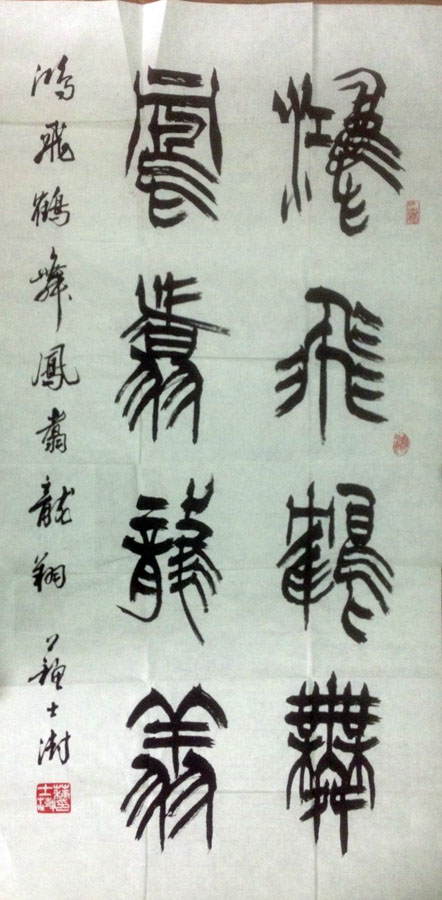 鴻飛鶴舞
鳳翥龍翔
鴻飛鶴舞鳳翥龍翔 蘇士澍